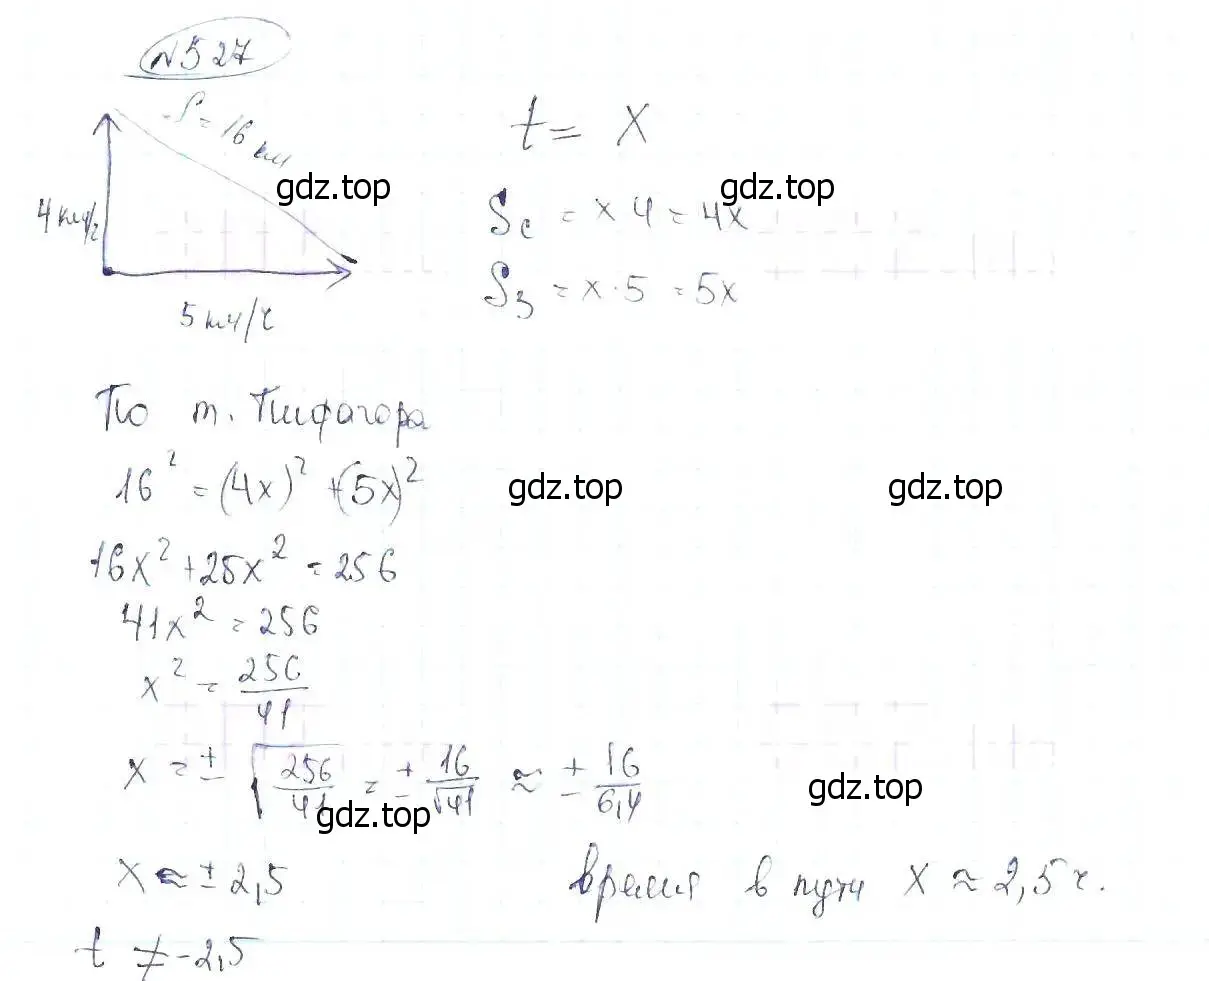 №527
S = 16 км
t = x
gdz.top
gdz.top
4 км/ч
Sс = x 4 = 4x
Sз = x·5 = 5x
5 км/ч
По т. Пифагора
16² = (4x)² + (5x)²
gdz.top
gdz.top
16x² + 25x² = 256
41x² = 256
x² = 256/41
x = ± √(256/41) = ± 16/√41 ≈ ± 16/6,4
gdz.top
gdz.top
x ≈ ± 2,5
время в пути x ≈ 2,5 ч.
t ≠ -2,5